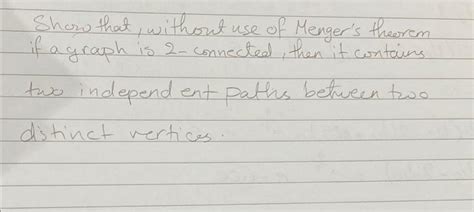 Show that, without use of Menger's theorem
if a graph is 2-connected, then it contains
two independent paths between two
distinct vertices.